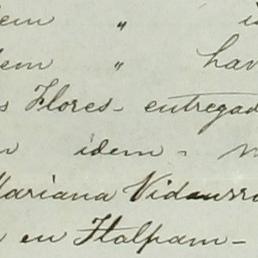 idem "
idem "
Flores - entregad
idem -
Mariana Vidaurr
en Tlalpam -